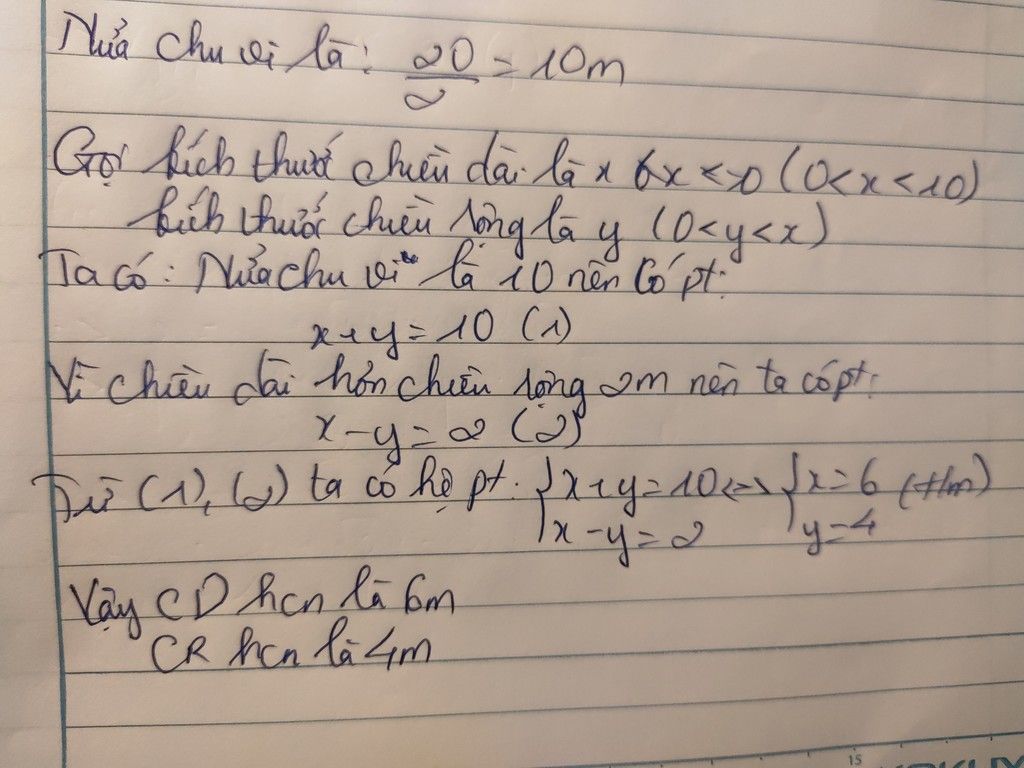 Nửa chu vi là: 20/2 = 10m
Gọi kích thước chiều dài là x (0<x<10)
kích thước chiều rộng là y (0<y<x)
Ta có: Nửa chu vi là 10 nên có pt:
x+y=10 (1)
Vì chiều dài hơn chiều rộng 2m nên ta có pt:
x-y=2 (2)
Từ (1), (2) ta có hệ pt: {x+y=10 <=> {x=6 (t/m)
x-y=2 y=4
Vậy CD hcn là 6m
CR hcn là 4m
15